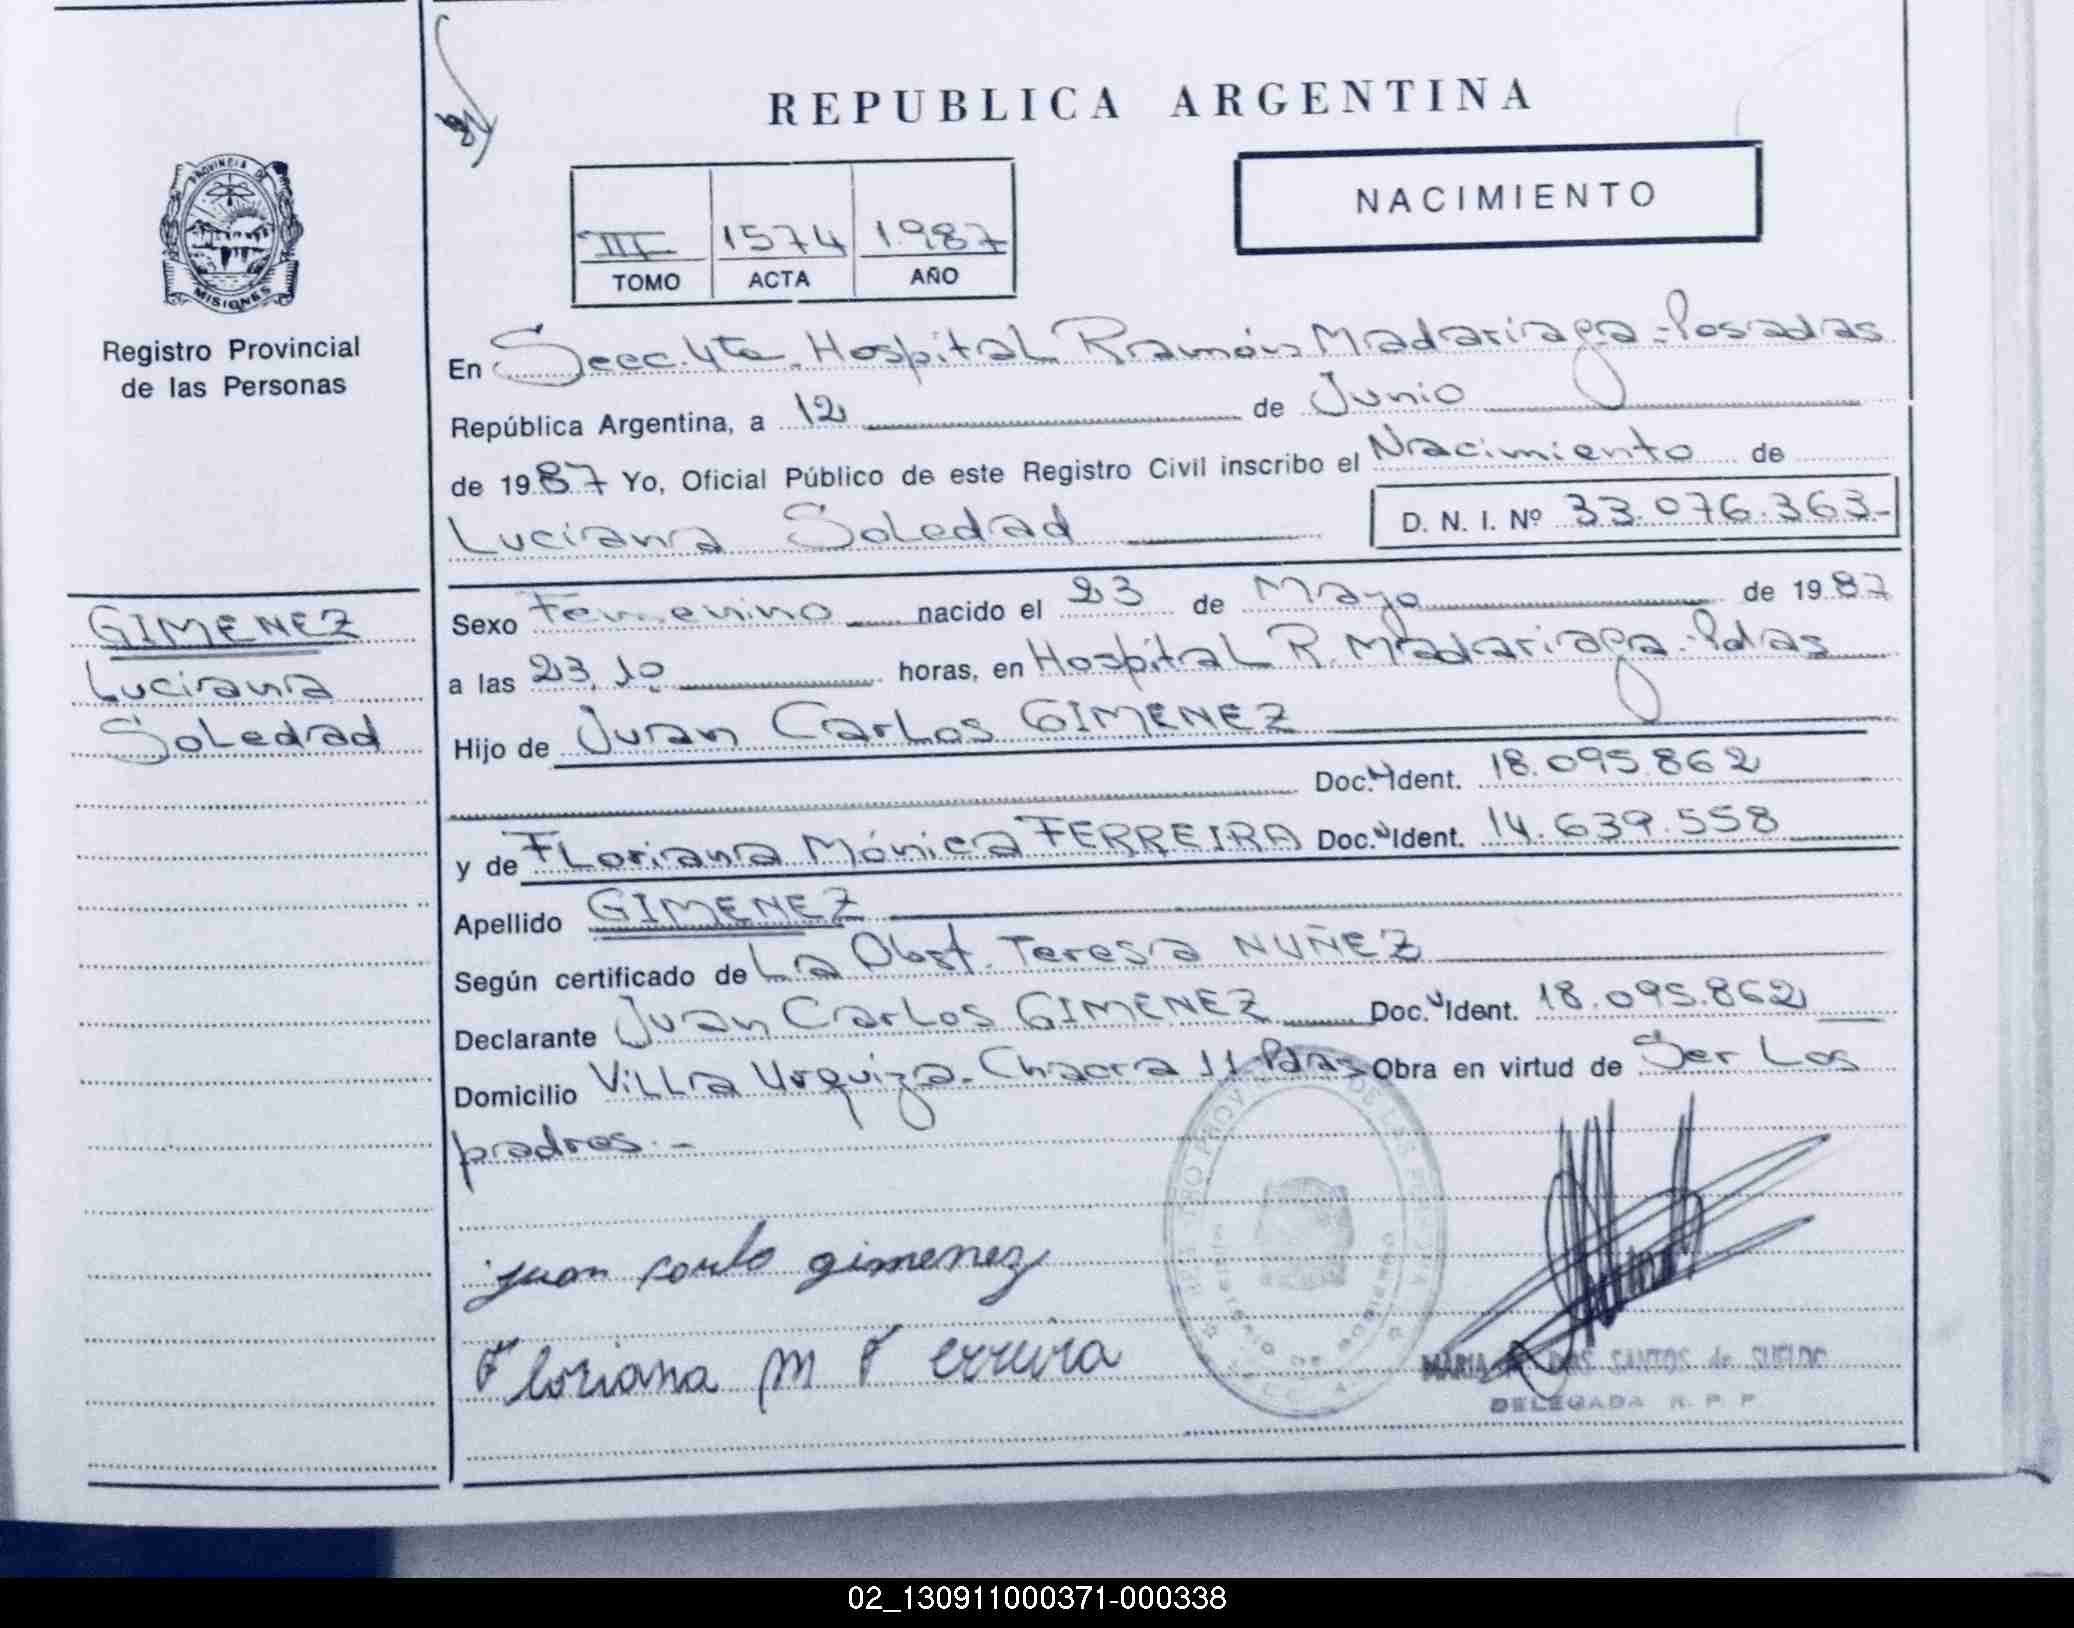 REPUBLICA ARGENTINA
NACIMIENTO
III 1574 1987
TOMO ACTA AÑO
PROVINCIA DE
MISIONES
Registro Provincial
de las Personas
GIMENEZ
Luciana
Soledad
En Secc. 4ta. Hospital Ramón Madariaga - Posadas
República Argentina, a 12 de Junio
de 1987 Yo, Oficial Público de este Registro Civil inscribo el Nacimiento de
Luciana Soledad D. N. I. Nº 33.076.363-
Sexo Femenino nacido el 23 de Mayo de 1987
a las 23,10 horas, en Hospital R. Madariaga - Pdas
Hijo de Juan Carlos GIMENEZ
Doc. Ident. 18.095.862
y de Floriana Mónica FERREIRA Doc. Ident. 14.639.558
Apellido GIMENEZ
Según certificado de La Obst. Teresa NUÑEZ
Declarante Juan Carlos GIMENEZ Doc. Ident. 18.095.862
Domicilio Villa Urquiza - Chacra 11 Pdas Obra en virtud de Ser Los
padres.-
juan carlo gimenez
Floriana M Ferreira
MARIA SANTOS de
DELEGADA R. P. P.
02_130911000371-000338